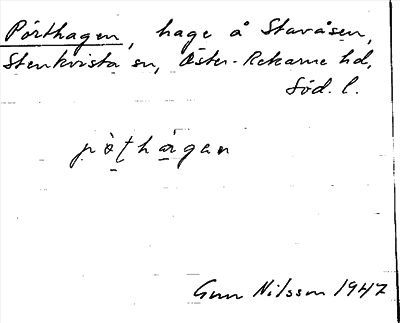 Pörthagen, hage å Stavåsen,
Stenkvista sn, Öster-Rekarne hd,
Söd. l.
pò̤ṭhāgan
Gun Nilsson 1947